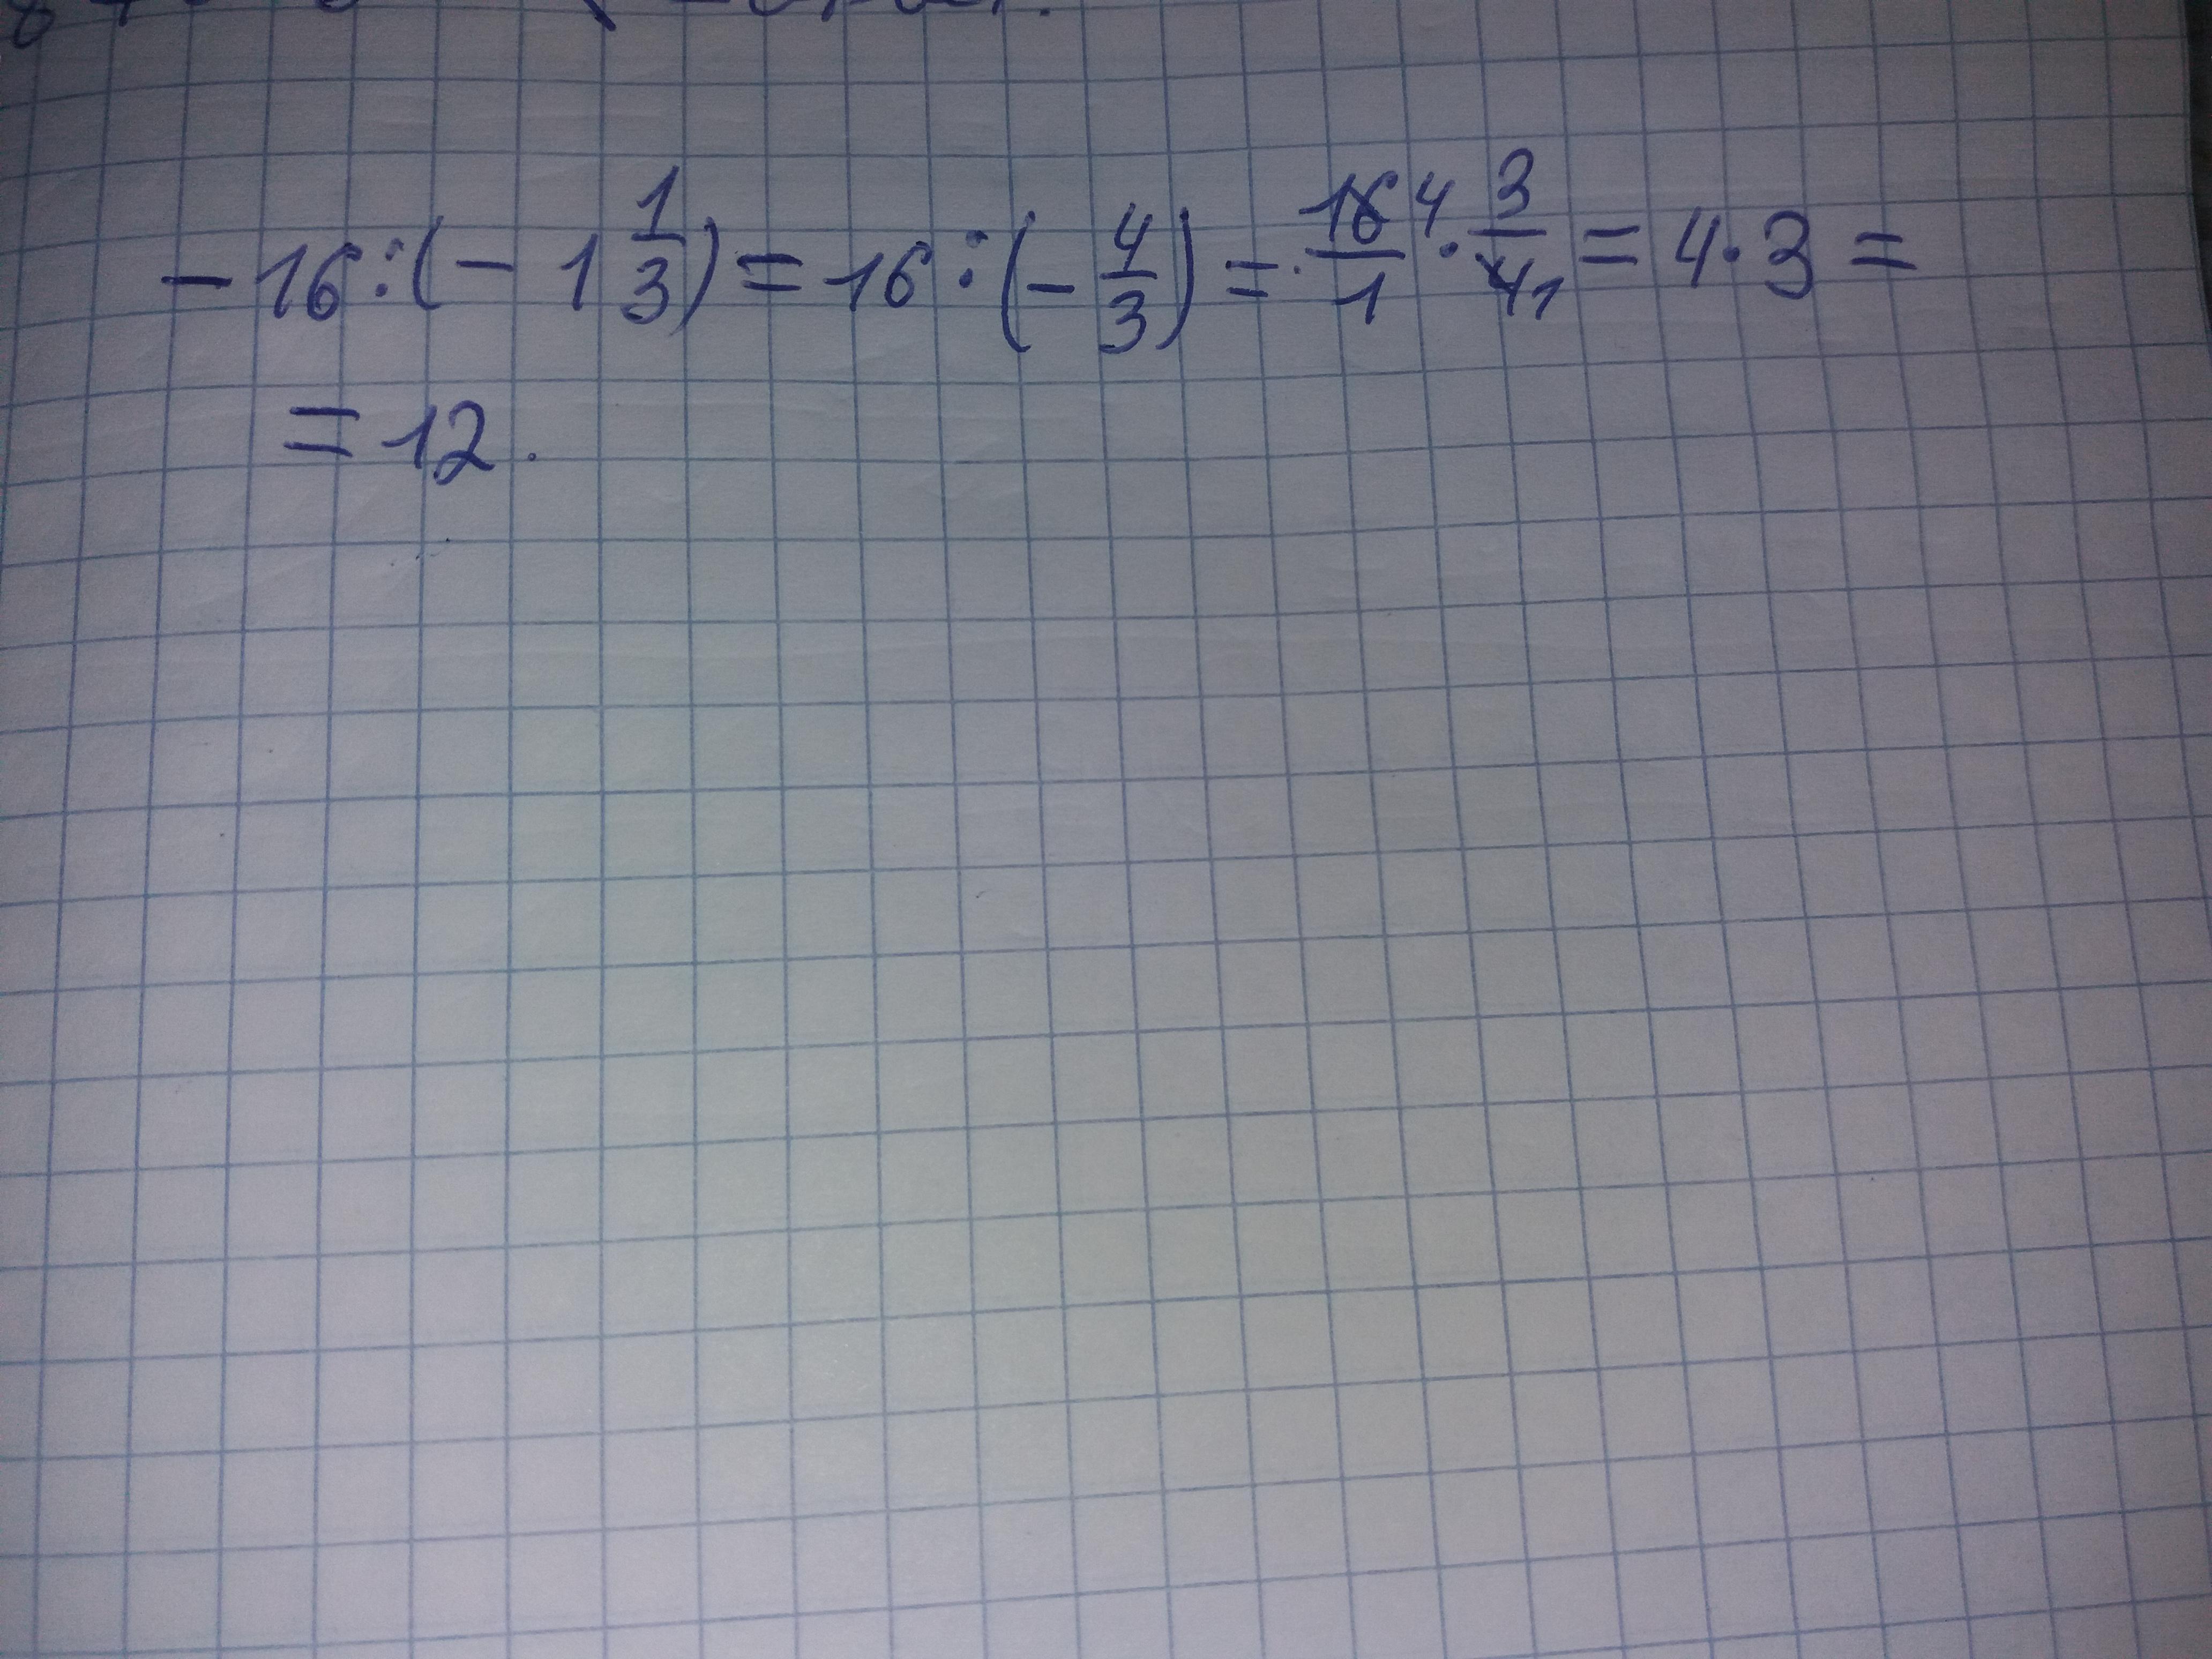 - 16 : (- 1 1/3) = 16 : (- 4/3) = 16 4/1 · 3/4 1 = 4 · 3 =
= 12.